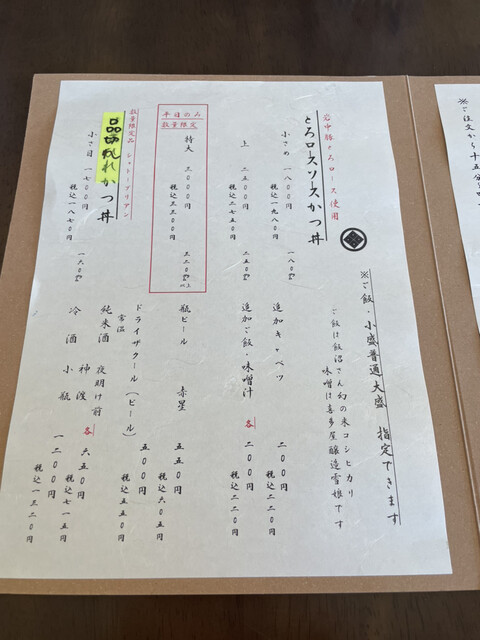 岩中豚とろロース使用
とろロースソースかつ丼
小さめ 一八〇〇円 一八〇㌘
税込一九八〇円
上 二五〇〇円 二五〇㌘
税込二七五〇円
平日のみ
数量限定
特大 三〇〇〇円 三二〇㌘以上
税込三三〇〇円
数量限定品 シャトーブリアン
品切れ
れかつ丼
小さ目 一七〇〇円 一六〇㌘
税込一八七〇円
※ご飯・小盛普通大盛 指定できます
ご飯は飯沼さん幻の米コシヒカリ
味噌は喜多屋醸造雪娘です
追加キャベツ 二〇〇円
税込二二〇円
追加ご飯・味噌汁 各 二〇〇円
税込二二〇円
瓶ビール 赤星 五五〇円
税込六〇五円
ドライザクール(ビール) 五〇〇円
常温 税込五五〇円
純米酒 夜明け前
神渡 各 六五〇円
税込七一五円
冷酒 小瓶 一二〇〇円
税込一三二〇円
※ご注文から十五分